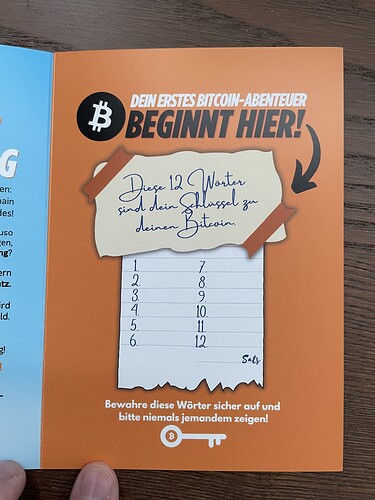 G
en:
hain
des!
uso
gen,
ng?
ern
tz.
ird
ld.
g!
DEIN ERSTES BITCOIN-ABENTEUER
BEGINNT HIER!
Diese 12 Wörter
sind dein Schlüssel zu
deinen Bitcoin.
1. 7.
2. 8.
3. 9.
4. 10.
5. 11.
6. 12.
Sats
Bewahre diese Wörter sicher auf und
bitte niemals jemandem zeigen!